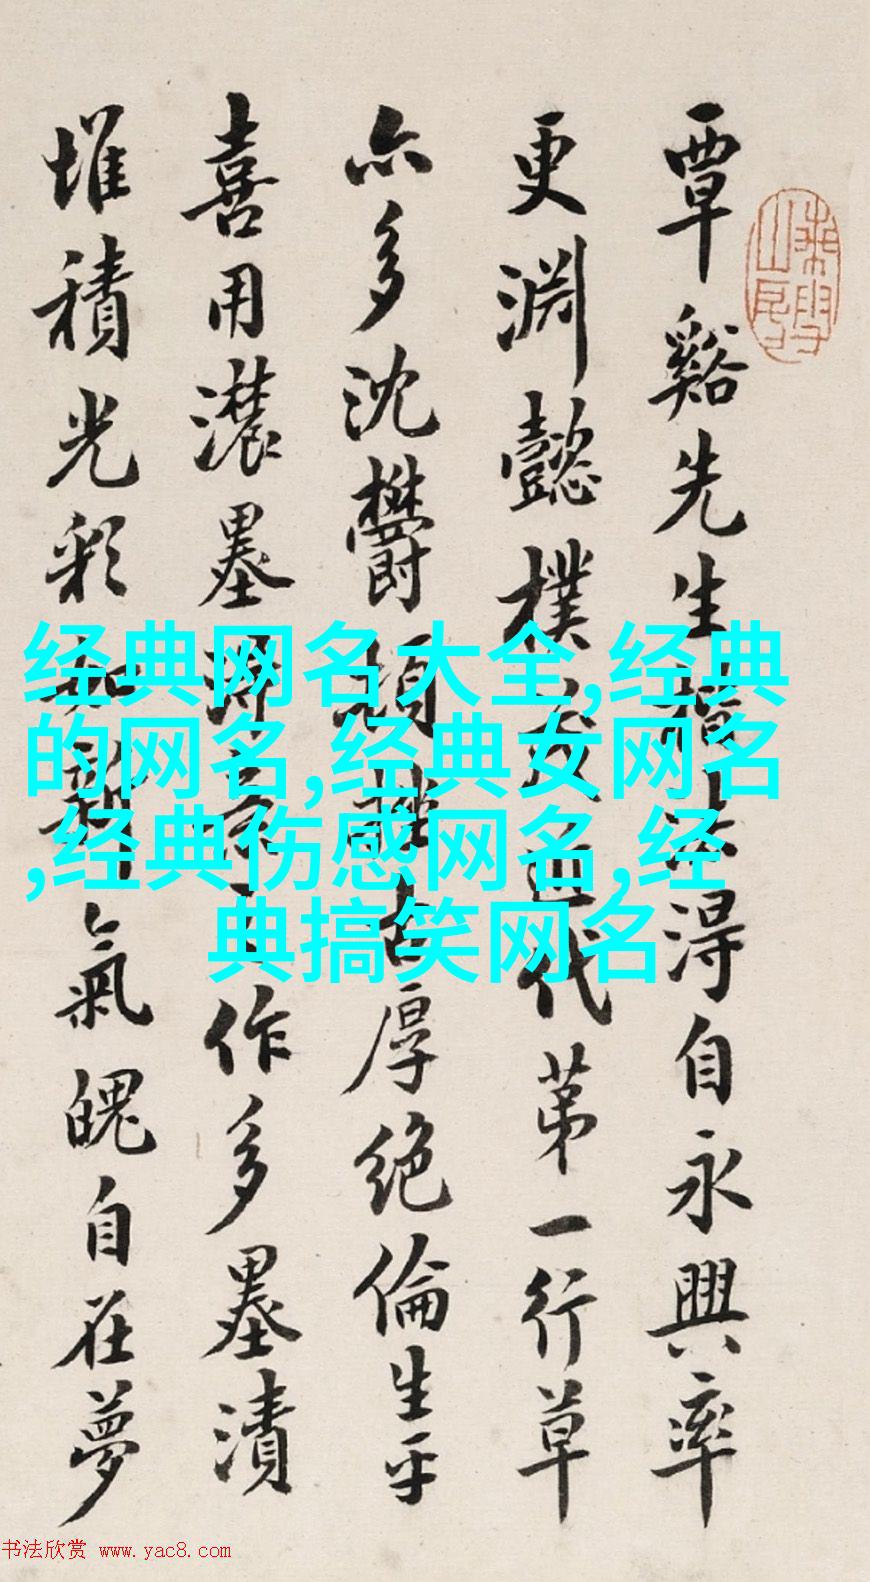 覃谿先生楷法得自永興率
更淵懿樸茂近代第一行草
亦多沈欝頓挫古厚絕倫生平
喜用濃墨淋作多墨漬
堆積光彩如氣魄自在夢
经典网名大全,经典
的网名,经典女网名
,经典伤感网名,经
典搞笑网名
书法欣赏 www.yac8.com